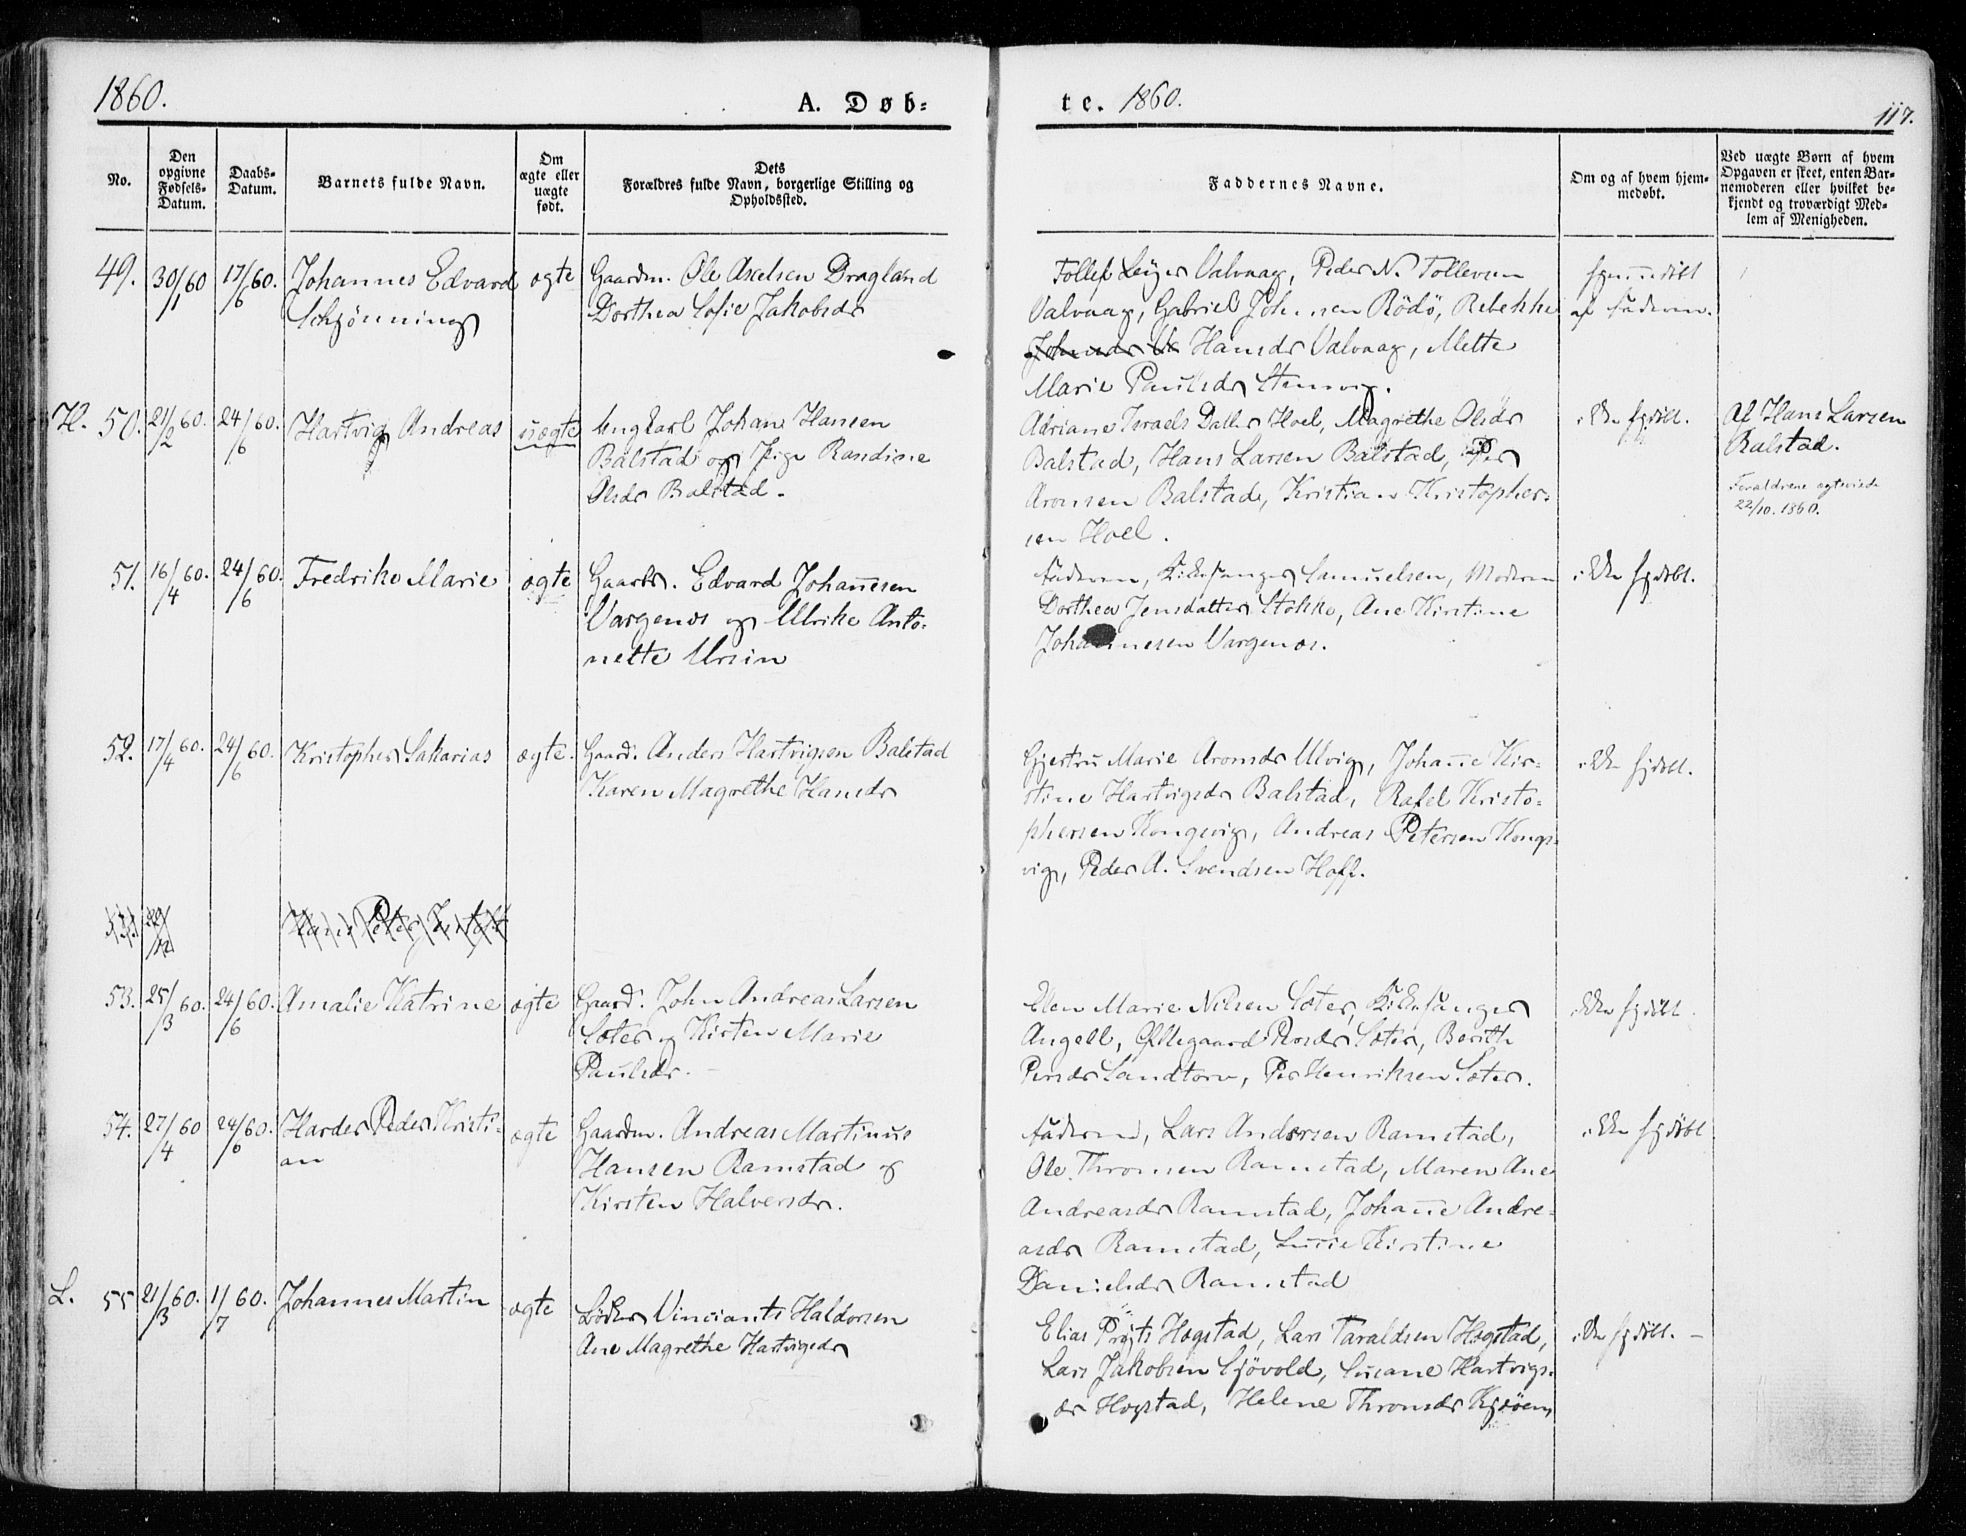 1860.
A. Døb-
te. 1860.
117.
No.
Den opgivne Fødsels-Datum.
Daabs-Datum.
Barnets fulde Navn.
Om ægte eller uægte født.
Dets Forældres fulde Navn, borgerlige Stilling og Opholdssted.
Faddernes Navne.
Om og af hvem hjem-medøbt.
Ved uægte Børn af hvem Opgaven er skeet, enten Bar-nemoderen eller hvilket be-kjendt og troværdigt Med-lem af Menigheden.
49. 30/1 60 17/6 60. Johannes Edvard
Schjønning
ægte
Gaardm. Ole Axelsen Dragland
Dorthea Sofie Jakobsdr
Tollef Valvaag, Peder N. Tollevsen
Valvaag, Gabriel Rödö, Rebekke
Hansdr Valvaag, Mette
Marie Paulsdr
hjemmedöbt
af Faderen.
H. 50. 21/2 60. 24/6 60. Hartvig Andreas
uægte
Ungkarl Johan Hansen
Balstad og Pige Randine
Olsdr Balstad.
Adriane Israels Datter Hoel, Magrethe Olsdr
Balstad, Hans Larsen Balstad, Per
Aronsen Balstad, Kristian Kristopher-
sen Hoel.
ikke hjdöbt.
Af Hans Larsen
Balstad.
Foraldrene egteviede
22/10. 1860.
51. 16/4 60. 24/6 60. Fredrike Marie
ægte
Gaardb. Edvard Johannesen
Vargenæs og Ulrike Anto-
nette Ursin
Faderen, Kirkesanger Samuelsen, Moderen
Dorthea Jensdatter Stokke, Ane Kirstine
Johannesen Vargenæs.
ikke hjdöbt.
52. 17/4 60. 24/6 60. Kristopher Sakarias
ægte.
Gaard. Anders Hartvigsen Balstad
Karen Magrethe Hansdr
Gjertru Marie Aronsdr Ulvig, Johanne Kir-
stine Hartvigsdr Balstad, Rafel Kristo-
phersen Kongsvig, Andreas Petersen Kongs-
vig, Peder A. Svendsen Hoff.
ikke hjdöbt.
Hans Peter
53. 25/3 60. 24/6 60. Amalie Katrine
ægte
Gaard. John Andreas Larsen
Sæter og Kirsten Marie
Paulsdr.
Elen Marie Nilsen Sæter, Kirkesanger
Angell, Øllegaard Sæter, Berith
Persdr Sandtorv, Per Henriksen Sæter.
ikke hjdöbt
54. 27/4 60 24/6 60. Harder Peder Kristi-
an
ægte
Gaardm. Andreas Martinus
Hansen Ramstad og
Kirsten Halversdr.
Faderen, Lars Andersen Ramstad,
Ole Thronsen Ramstad, Maren Ane
Andreasdr Ramstad, Johanne Andre-
asdr Ramstad, Lucie Kirstine
Danielsdr Ramstad
ikke hjdöbt
L. 55 21/3 60. 1/7 60. Johannes Martin
ægte
Vinciants Haldorsen
Ane Magrethe Hartvigsdr
Elias Hogstad, Lars Taraldsen Hogstad,
Lars Jakobsen Sjövold, Susane Hartvigs-
dr Hogstad, Helene Thronsdr
ikke hjdöbt. –